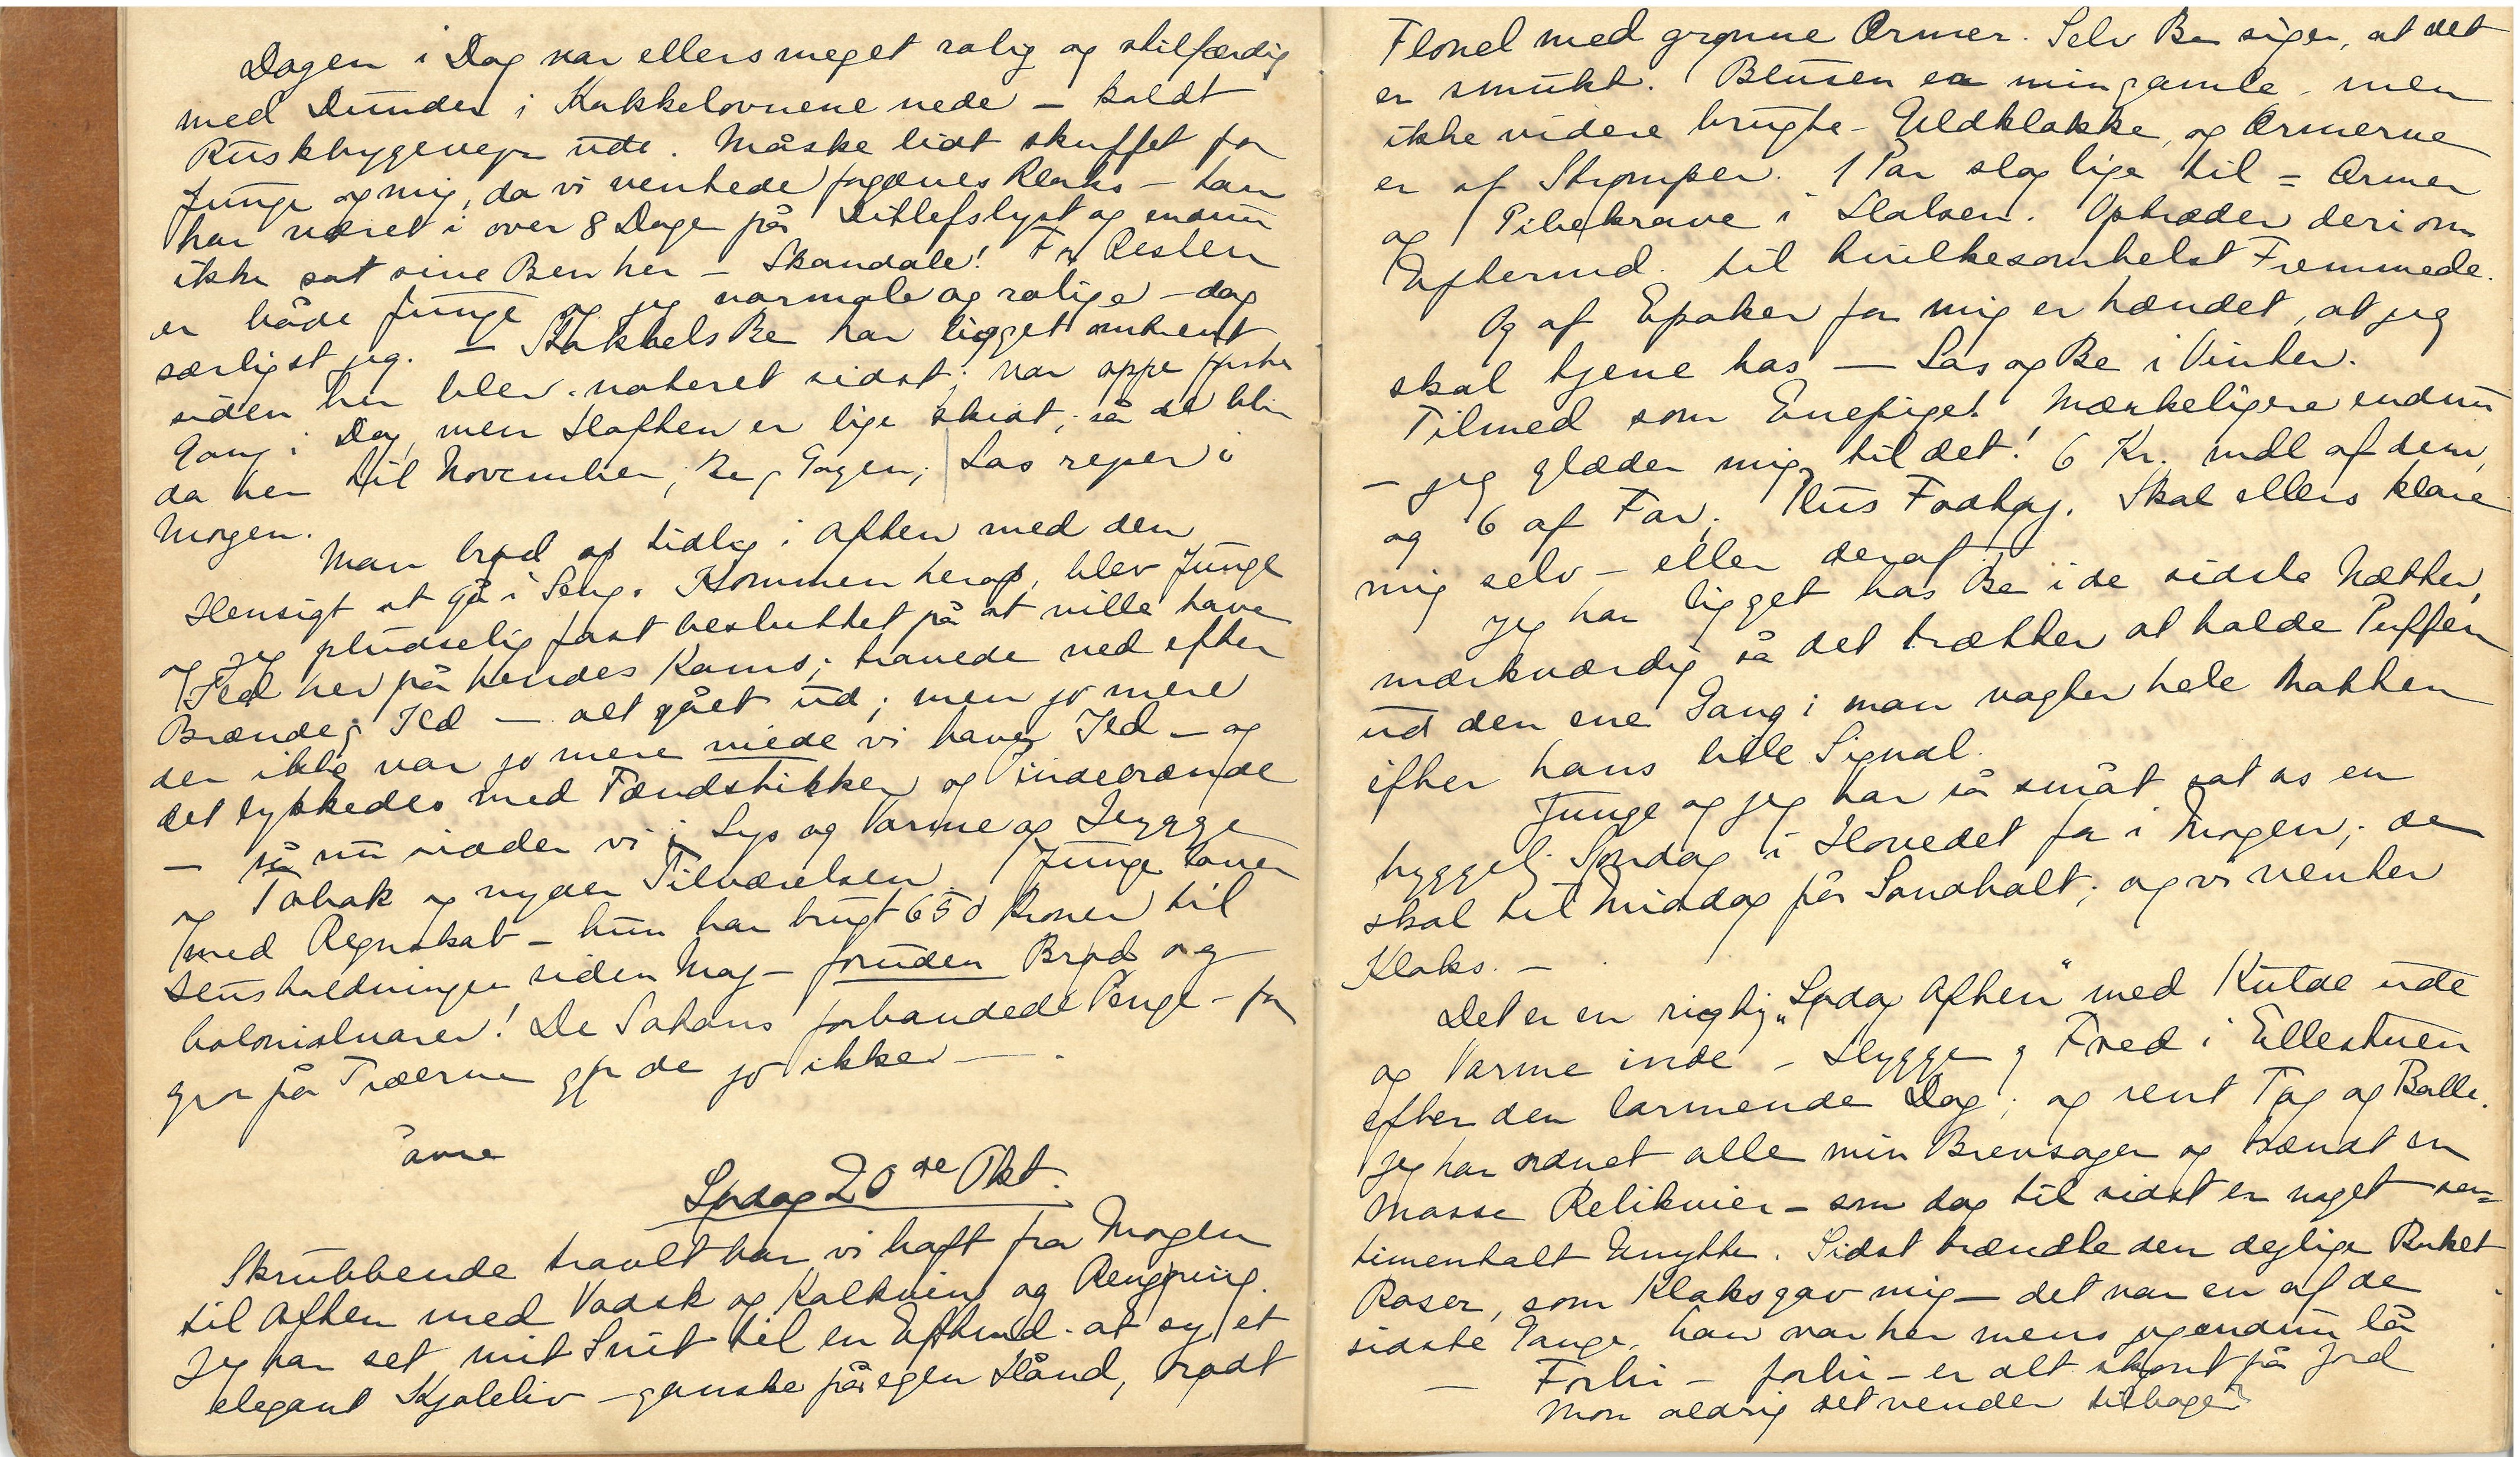 Dagen i Dag var ellers meget rolig og stilfærdig
med Dunder i Kakkelovnene nede – koldt
Ruskbygevejr ude. Måske lidt skuffet for
Junge og mig, da vi ventede forgæves Klaks – han
har været i over 8 Dage på Ditlefslyst og endnu
ikke sat sine Ben her – Skandale! For Resten
er både Junge og jeg normale og rolige – dog
særligst jeg. – Stakkels Be har ligget omtrent
siden her blev noteret sidst; var oppe første
Gang i Dag, men Hoften er lige skidt, så de blir
da her til November, Be Las rejser i
Morgen.
Man brød op tidlig i Aften med den
Hensigt at gå i Seng. Kommen herop, blev Junge
og jeg pludselig fast besluttet på at ville have
Ild her på hendes Kams; travede ned efter
Brænde Ild – alt gået ud; men jo mere
der ikke var jo mere måtte vi have Ild – og
det lykkedes med Tændstikker og Pindebrænde
– så nu sidder vi i Lys og Varme og Hygge
og Tobak og nyder Tilværelsen. Junge
med Regnskab – hun har brugt 650 Kroner til
Husholdningen siden Maj – foruden Brød og
Kolonialvarer! De Satans forbandede Penge – for
gror på Træerne gør de jo ikke – .
åvre
Lørdag 20de Okt.
Skrubbende travlt har vi haft fra Morgen
til Aften med Vadsk og Kalkning og Rengøring.
Jeg har set mit Snit til en Eftmd. at sy et
elegant Kjoleliv – ganske på egen Hånd, rødt
Flonel med grønne Ærmer. Selv Be siger, at det
er smukt. Blusen er min gamle, men
ikke videre brugte – Uldklokke, og Ærmerne
er af Strømper. 1 Par slog lige til = Ærmer
og Pibekrave i Halsen. Optræder deri om
Eftermd. til hvilkesomhelst Fremmede.
Og af Epoker for mig er hændet, at jeg
skal tjene hos – Las og Be i Vinter.
Tilmed som Enepige! Mærkeligere endnu
– jeg glæder mig til det! 6 Kr. mdl af dem,
og 6 af Far; Plus Fodtøj. Skal ellers klare
mig selv – eller deraf.
Jeg har ligget hos Be i de sidste Nætter,
mærkværdig så det trætter at holde Puffen
ud den ene Gang; man vagter hele Natten
efter hans lille Signal.
Junge og jeg har så småt sat os en
hyggelig Søndag i Hovedet for i Morgen; de
skal til Middag på Sandholt; og vi venter
Klaks. –
Det er en rigtig „Lørdag Aften“ med Kulde ude
og Varme inde – Hygge og Fred i Ellestuen
efter den larmende Dag; og rent Tøj og Balle.
Jeg har ordnet alle min Brevsager og brændt en
Masse Relikvier – som dog til sidst er noget sen=
timentalt Unytte. Sidst brændte den dejlige Buket
Roser, som Klaks gav mig – det var en af de
sidste Gange, han var her mens jeg endnu lå
– Forbi – forbi – er alt skønt på Jord
Mon aldrig det vender tilbage?